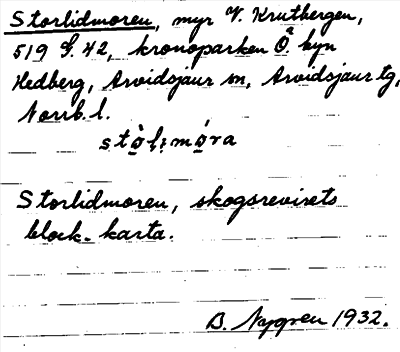 Storlidmoren, myr V. Krutbergen,
519 G. 42, kronoparken Ö. byn
Hedberg, Arvidsjaur sn, Arvidsjaur tg,
Norrb. l.
Storlidmoren, skogsrevirets
block-karta.
B. Nygren 1932.